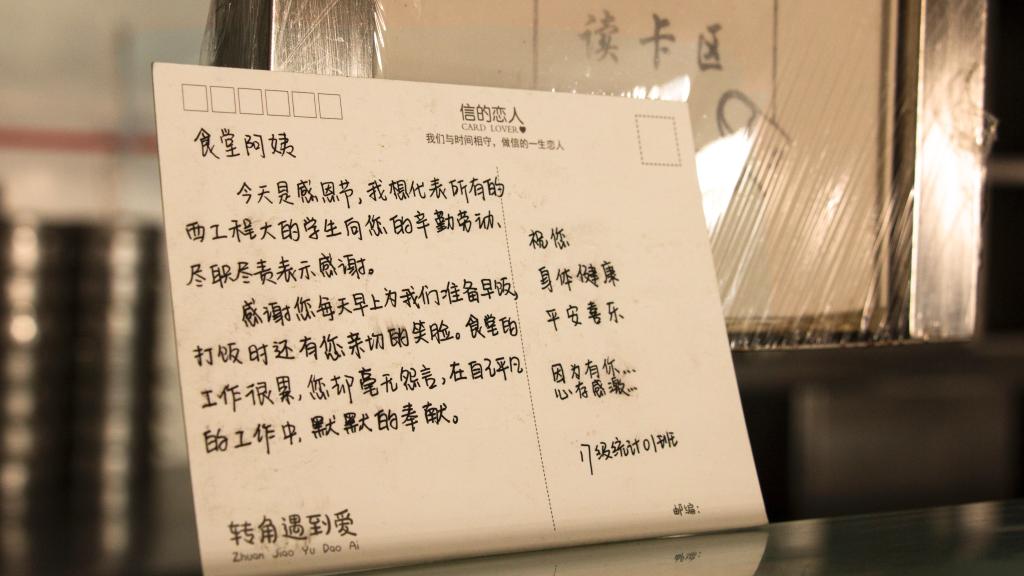 读卡区
信的恋人
CARD LOVER
我们与时间相守，做信的一生恋人
食堂阿姨
今天是感恩节，我想代表所有的
西工程大的学生向您的辛勤劳动、
尽职尽责表示感谢。
感谢您每天早上为我们准备早饭，
打饭时还有您亲切的笑脸。食堂的
工作很累，您却毫无怨言，在自己平凡
的工作中，默默的奉献。
祝您
身体健康
平安喜乐
因为有你...
心存感激...
17级统计01班
转角遇到爱
Zhuan Jiao Yu Dao Ai
邮编：